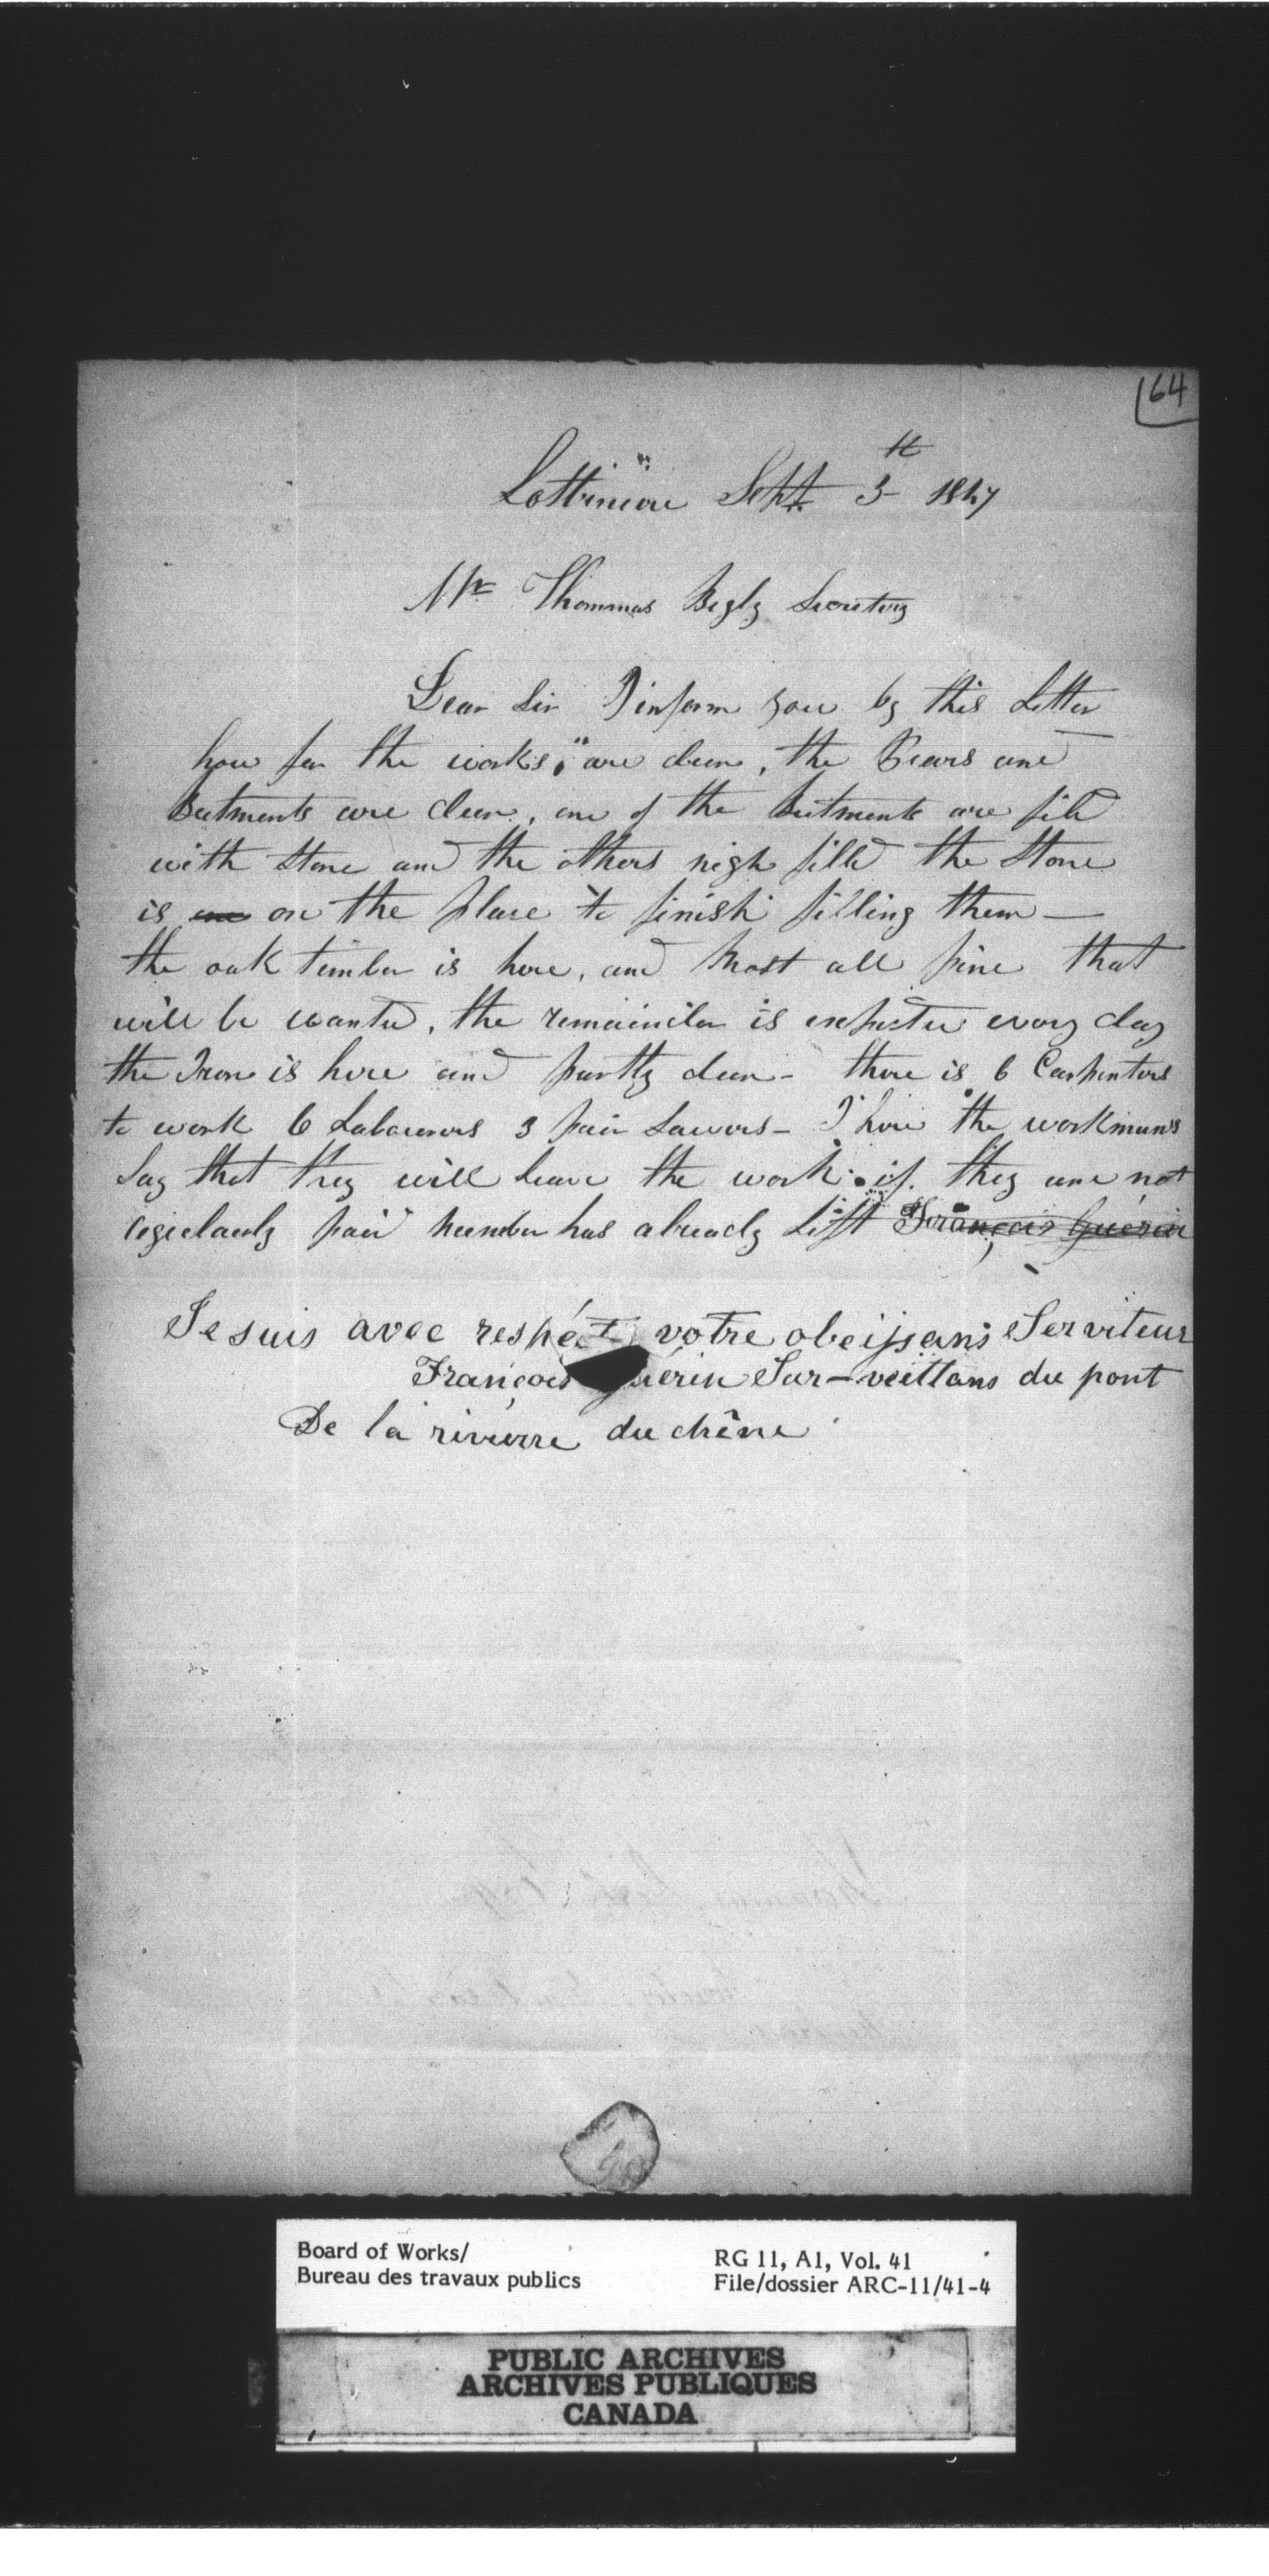 64
Lottbiniere Sept. 3th 1847
Mr Thommas Begly Secretary
Dear Sir I inform you by this Letter
how far the works, are doun, the Piears and
Butments are doun, one of the Butments are fild
with Stone and the others nigh filld the Stone
is on the place to finish filling them —
the oak timber is here, and Most all pine that
will be wanted, the remainder is expected every day
the Iron is here and partly doun - there is 6 Carpenters
to work 6 Labourers 3 pair Sawers - I here the workmans
Say that they will leave the work if they are not
regielarly paid number has already Lift François Guerin
Je suis avec respéct votre obeissans Serviteur
François Guérin Sur-veillans du pont
De la rivierre du chêne
Board of Works/
Bureau des travaux publics
RG 11, A1, Vol. 41
File/dossier ARC-11/41-4
PUBLIC ARCHIVES
ARCHIVES PUBLIQUES
CANADA